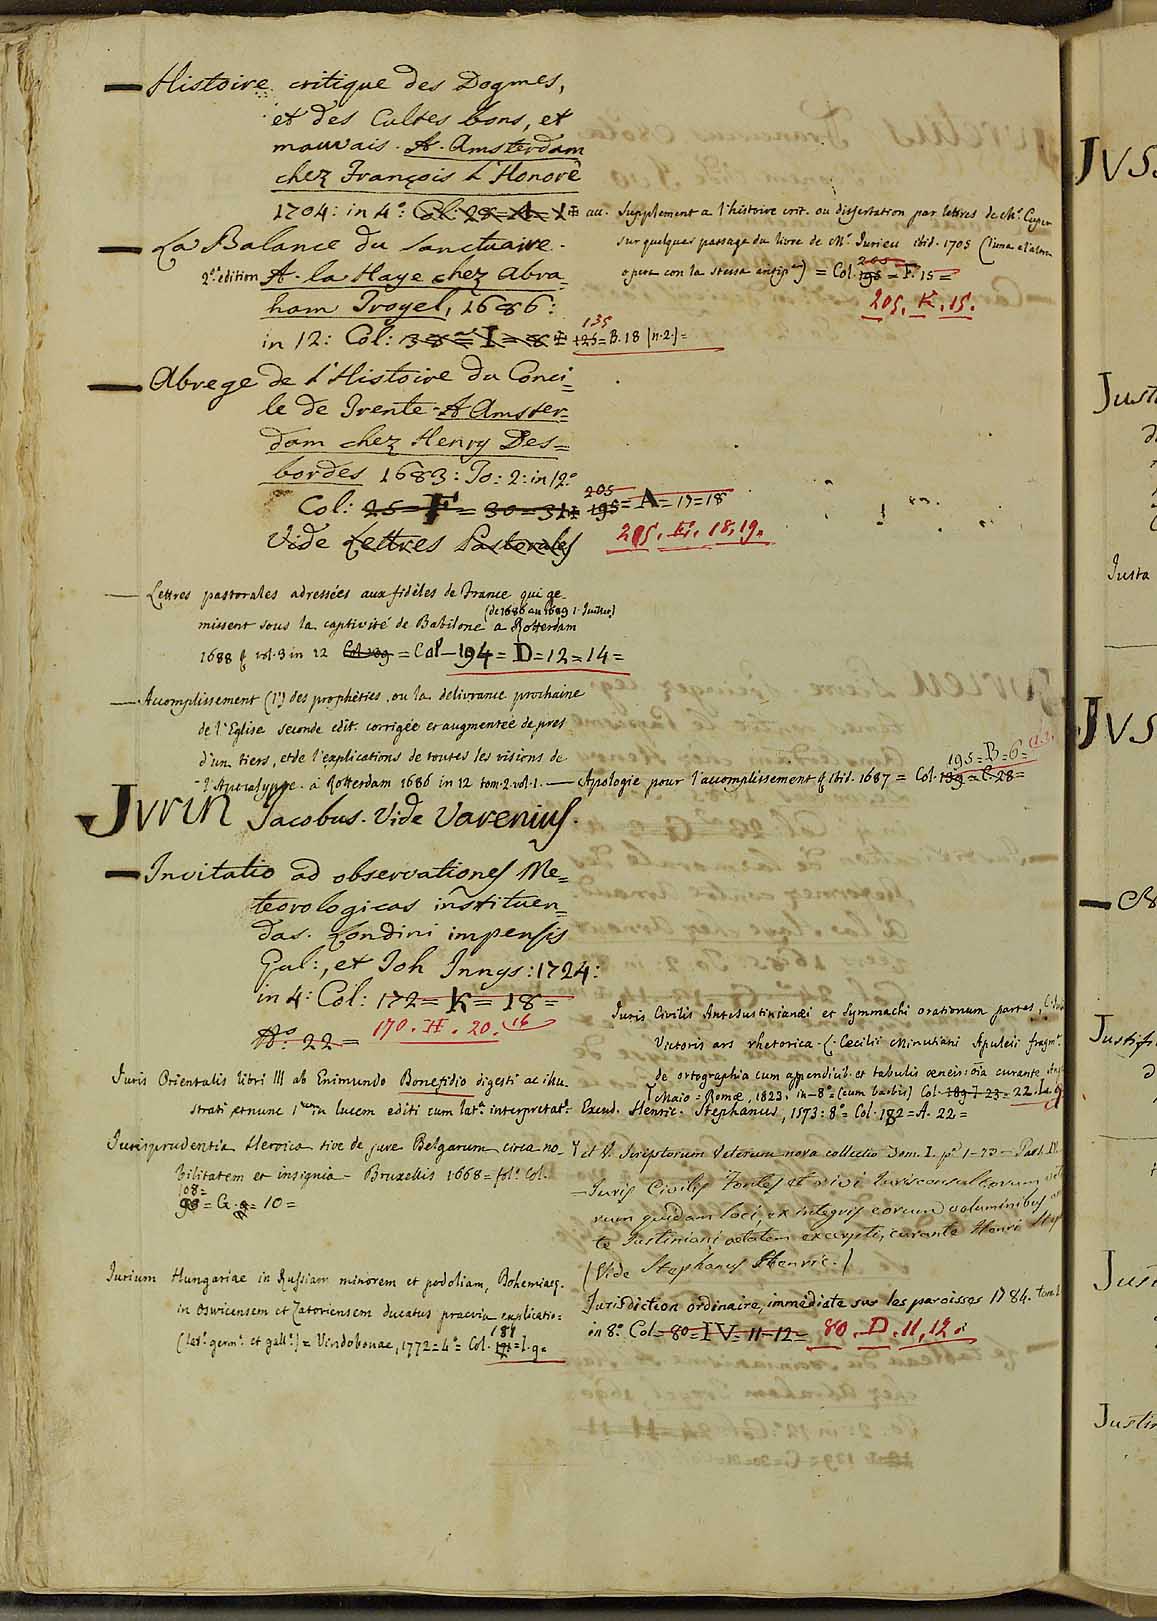 — Histoire critique des Dogmes,
et des Cultes bons, et
mauvais. A. Amsterdam
chez François L'Honoré
1704: in 4°: Col: 28= A= 1=
au. Supplement a l'histoire crit. ou dissertation par lettres de Mr. Cuper
sur quelques passage du livre de Mr. Jurieu ibid. 1705 (l'una e l'altra
opera con la stessa) = Col. 195 = F. 15 =
205
205. K. 15.
— La Balance du Sanctuaire.
2e. édition A. la Haye chez Abra=
ham Troyel, 1686:
in 12: Col: 38= I= 8=
135
125= B. 18 (n. 2.)=
— Abrege de l'Histoire du Conci=
le de Trente. A Amster=
dam chez Henry Des=
bordes 1683: To: 2: in 12°
Col: 25= F= 30= 31=
205
195= A= 17=18
205. K. 18, 19.
Vide Lettres Pastorales
— Lettres pastorales adressées aux fidèles de France qui ge-
missent sous la captivité de Babilone a Rotterdam
(de 1686 au 1689 1. Juillet)
1688 vol. 3 in 12 Col. 139 = Col - 194= D= 12= 14=
— Accomplissement (l') des prophéties, ou la delivrance prochaine
de l'Eglise seconde edit. corrigée et augmentée de pres
d'un tiers, et de l'explications de toutes les visions de
l'Apocalypse. à Rotterdam 1686 in 12 tom. 2. vol. 1. — Apologie pour l'accomplissement ibid. 1687 = Col. 139= C. 28=
195= B= 6=
JVRIN Jacobus. Vide Varenius.
— Invitatio ad observationes Me=
teorologicas instituen=
das. Londini impensis
Gul:, et Joh Innys: 1724:
in 4: Col: 172= K= 18=
N°. 22=
170. H. 20. 16
Juris Civilis AnteJustinianæi et Symmachi orationum partes,
Victoris ars rhetorica. L. Cæcilii Minutiani Apuleii fragm.
de ortographia cum appendicib. et tabulis æneis: oīa curante
Maio = Romæ, 1823. in-8° (cum barbis) Col. 189 I 23= 22.
Juris Orientalis libri III ab Enimundo Bonefidio digesti ac illu-
strati et nunc 1um in lucem editi cum lat. interpretat. Excud. Henric. Stephanus, 1573: 8°= Col. 182= A. 22=
Jurisprudentia Heroica sive de jure Belgarum circa no-
bilitatem et insignia - Bruxellis 1668= fol. Col.
108=
98= G. = 10=
et V. Scriptorum Veterum nova collectio Tom. I. Part. IV.
— Juris Civilis Fontes et rivi Jurisconsultorum
rum quidam loci, ex integris eorum voluminibus
te Justiniani aetatem excerpti, curante Henri
(Vide Stephanus Henric.)
Jurium Hungariae in Russiam minorem et podoliam, Bohemiaeq.
in Oswicensem et Zatoriensem ducatus praevia explicatio=
(lat. germ. et gall.)= Vindobonae, 1772= 4°= Col. 191= I. 9=
181
Jurisdiction ordinaire, immédiate sur les paroisses 1784. tom.
in 8°. Col= 80= IV= 11=12= 80. D. 11, 12.
JVS
Just
Justa
JVS
Justif
Just
Justin